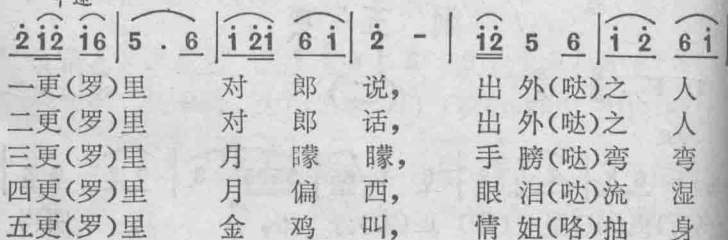 2 12 16 | 5 . 6 | 1 21 6 1 | 2 - | 12 5 6 | 1 2 6 1 |
一更(罗)里 对 郎 说, 出 外(哒)之 人
二更(罗)里 对 郎 话, 出 外(哒)之 人
三更(罗)里 月 曚 曚, 手 膀(哒)弯 弯
四更(罗)里 月 偏 西, 眼 泪(哒)流 湿
五更(罗)里 金 鸡 叫, 情 姐(咯)抽 身